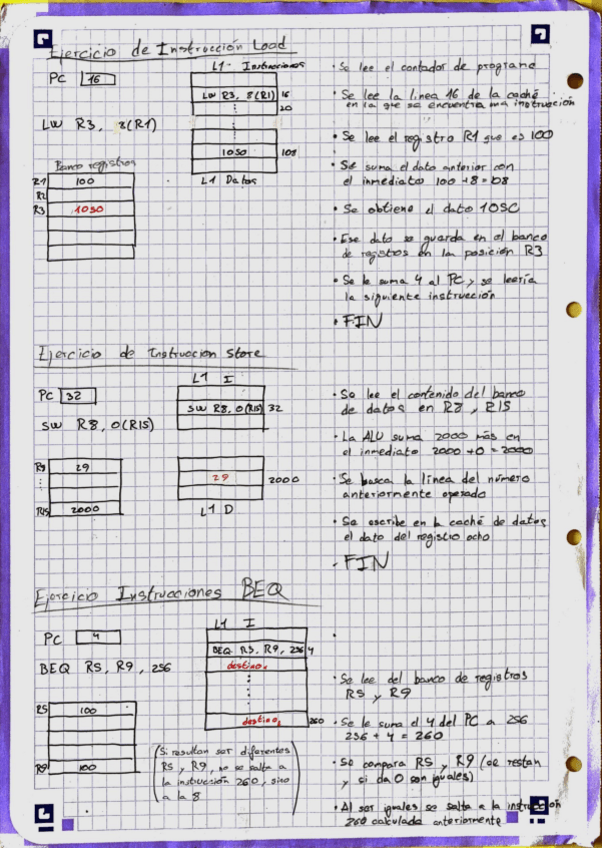 Ejercicio de Instrucción Load
PC 16
LW R3, 8(R1)
Banco registros
R1 100
R2
R3 1050
L1 - Instrucciones
LW R3, 8(R1) 16
20
1050 108
L1 Datos
• Se lee el contador de programa
• Se lee la línea 16 de la caché
en la que se encuentra una instrucción
• Se lee el registro R1 que es 100
• Se suma el dato anterior con
el inmediato 100 + 8 = 108
• Se obtiene el dato 1050
• Ese dato se guarda en el banco
de registros en la posición R3
• Se le suma 4 al PC y se leería
la siguiente instrucción
• FIN
Ejercicio de Instruccion Store
PC 32
SW R8, 0(R15)
R8 29
R15 2000
L1 I
SW R8, 0(R15) 32
29 2000
L1 D
• Se lee el contenido del banco
de datos en R8 y R15
• La ALU suma 2000 más en
el inmediato 2000 + 0 = 2000
• Se busca la línea del número
anteriormente operado
• Se escribe en la caché de datos
el dato del registro ocho
- FIN
Ejercicio Instrucciones BEQ
PC 4
BEQ R5, R9, 256
R5 100
R9 100
L1 I
BEQ R5, R9, 256 4
destino
destino 260
(Si resultan ser diferentes
R5 y R9, no se salta a
la instrucción 260, sino
a la 8)
•
• Se lee del banco de registros
R5 y R9
• Se le suma el 4 del PC a 256
256 + 4 = 260
• Se compara R5 y R9 (se restan
y si da 0 son iguales)
• Al ser iguales se salta a la instrucción
260 calculada anteriormente